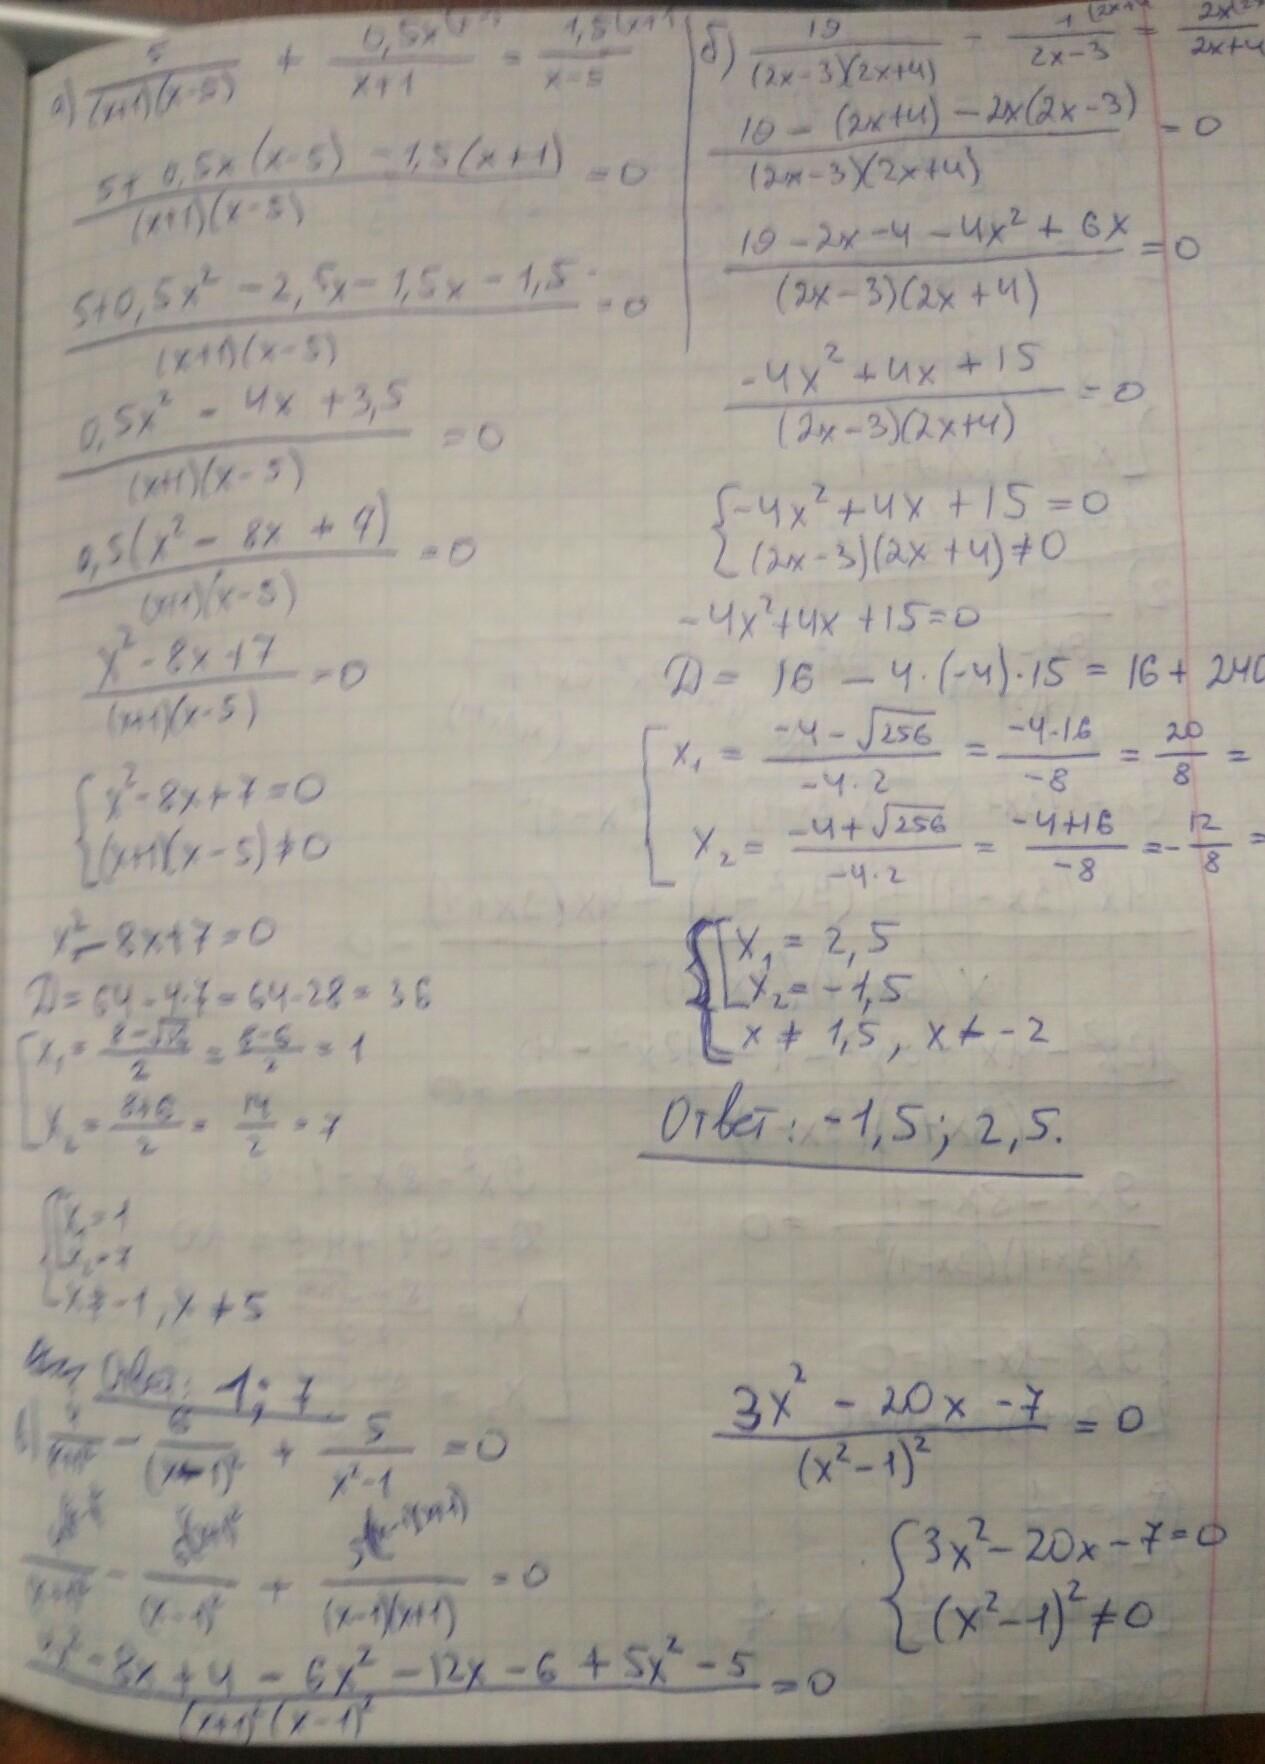 а) 5/((x+1)(x-5)) + 0,5x/(x+1) = 1,5(x+1)/(x-5)
(5+0,5x(x-5) - 1,5(x+1))/((x+1)(x-5)) = 0
(5+0,5x² - 2,5x - 1,5x - 1,5)/((x+1)(x-5)) = 0
(0,5x² - 4x + 3,5)/((x+1)(x-5)) = 0
0,5(x² - 8x + 7)/((x+1)(x-5)) = 0
(x² - 8x + 7)/((x+1)(x-5)) = 0
{ x² - 8x + 7 = 0
(x+1)(x-5) ≠ 0
x² - 8x + 7 = 0
D = 64 - 4·7 = 64 - 28 = 36
[ x₁ = (8-√36)/2 = (8-6)/2 = 1
x₂ = (8+6)/2 = 14/2 = 7
{ [ x₁ = 1
x₂ = 7
x ≠ -1, x ≠ 5
Ответ: 1; 7
б) 19/((2x-3)(2x+4)) - 1/(2x-3) = 2x/(2x+4)
(19 - (2x+4) - 2x(2x-3))/((2x-3)(2x+4)) = 0
(19 - 2x - 4 - 4x² + 6x)/((2x-3)(2x+4)) = 0
(-4x² + 4x + 15)/((2x-3)(2x+4)) = 0
{ -4x² + 4x + 15 = 0
(2x-3)(2x+4) ≠ 0
-4x² + 4x + 15 = 0
D = 16 - 4·(-4)·15 = 16 + 240
[ x₁ = (-4-√256)/(-4·2) = (-4-16)/(-8) = 20/8 =
x₂ = (-4+√256)/(-4·2) = (-4+16)/(-8) = -12/8 =
{ [ x₁ = 2,5
x₂ = -1,5
x ≠ 1,5, x ≠ -2
Ответ: -1,5; 2,5.
в) /(x+1)² - 6/(x-1)² + 5/(x²-1) = 0
/(x+1)² - /(x-1)² + 5(x-1)(x+1)/((x-1)(x+1)) = 0
x² - 8x + 4 - 6x² - 12x - 6 + 5x² - 5/((x+1)²(x-1)²) = 0
(3x² - 20x - 7)/(x²-1)² = 0
{ 3x² - 20x - 7 = 0
(x²-1)² ≠ 0